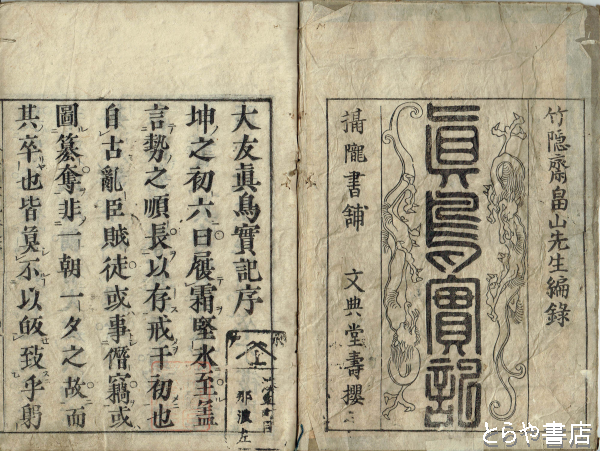 竹隱齋畠山先生編錄
眞鳥實記
搨隴書舖　文典堂壽櫻
大友眞鳥實記序
坤之初六曰履霜堅氷至蓋
言勢之順長以存戒于初也
自古亂臣賊徒或事僭竊或
圖簒奪非一朝一夕之故而
其卒也皆莫不以敗致乎躬
那波左
とらや書店